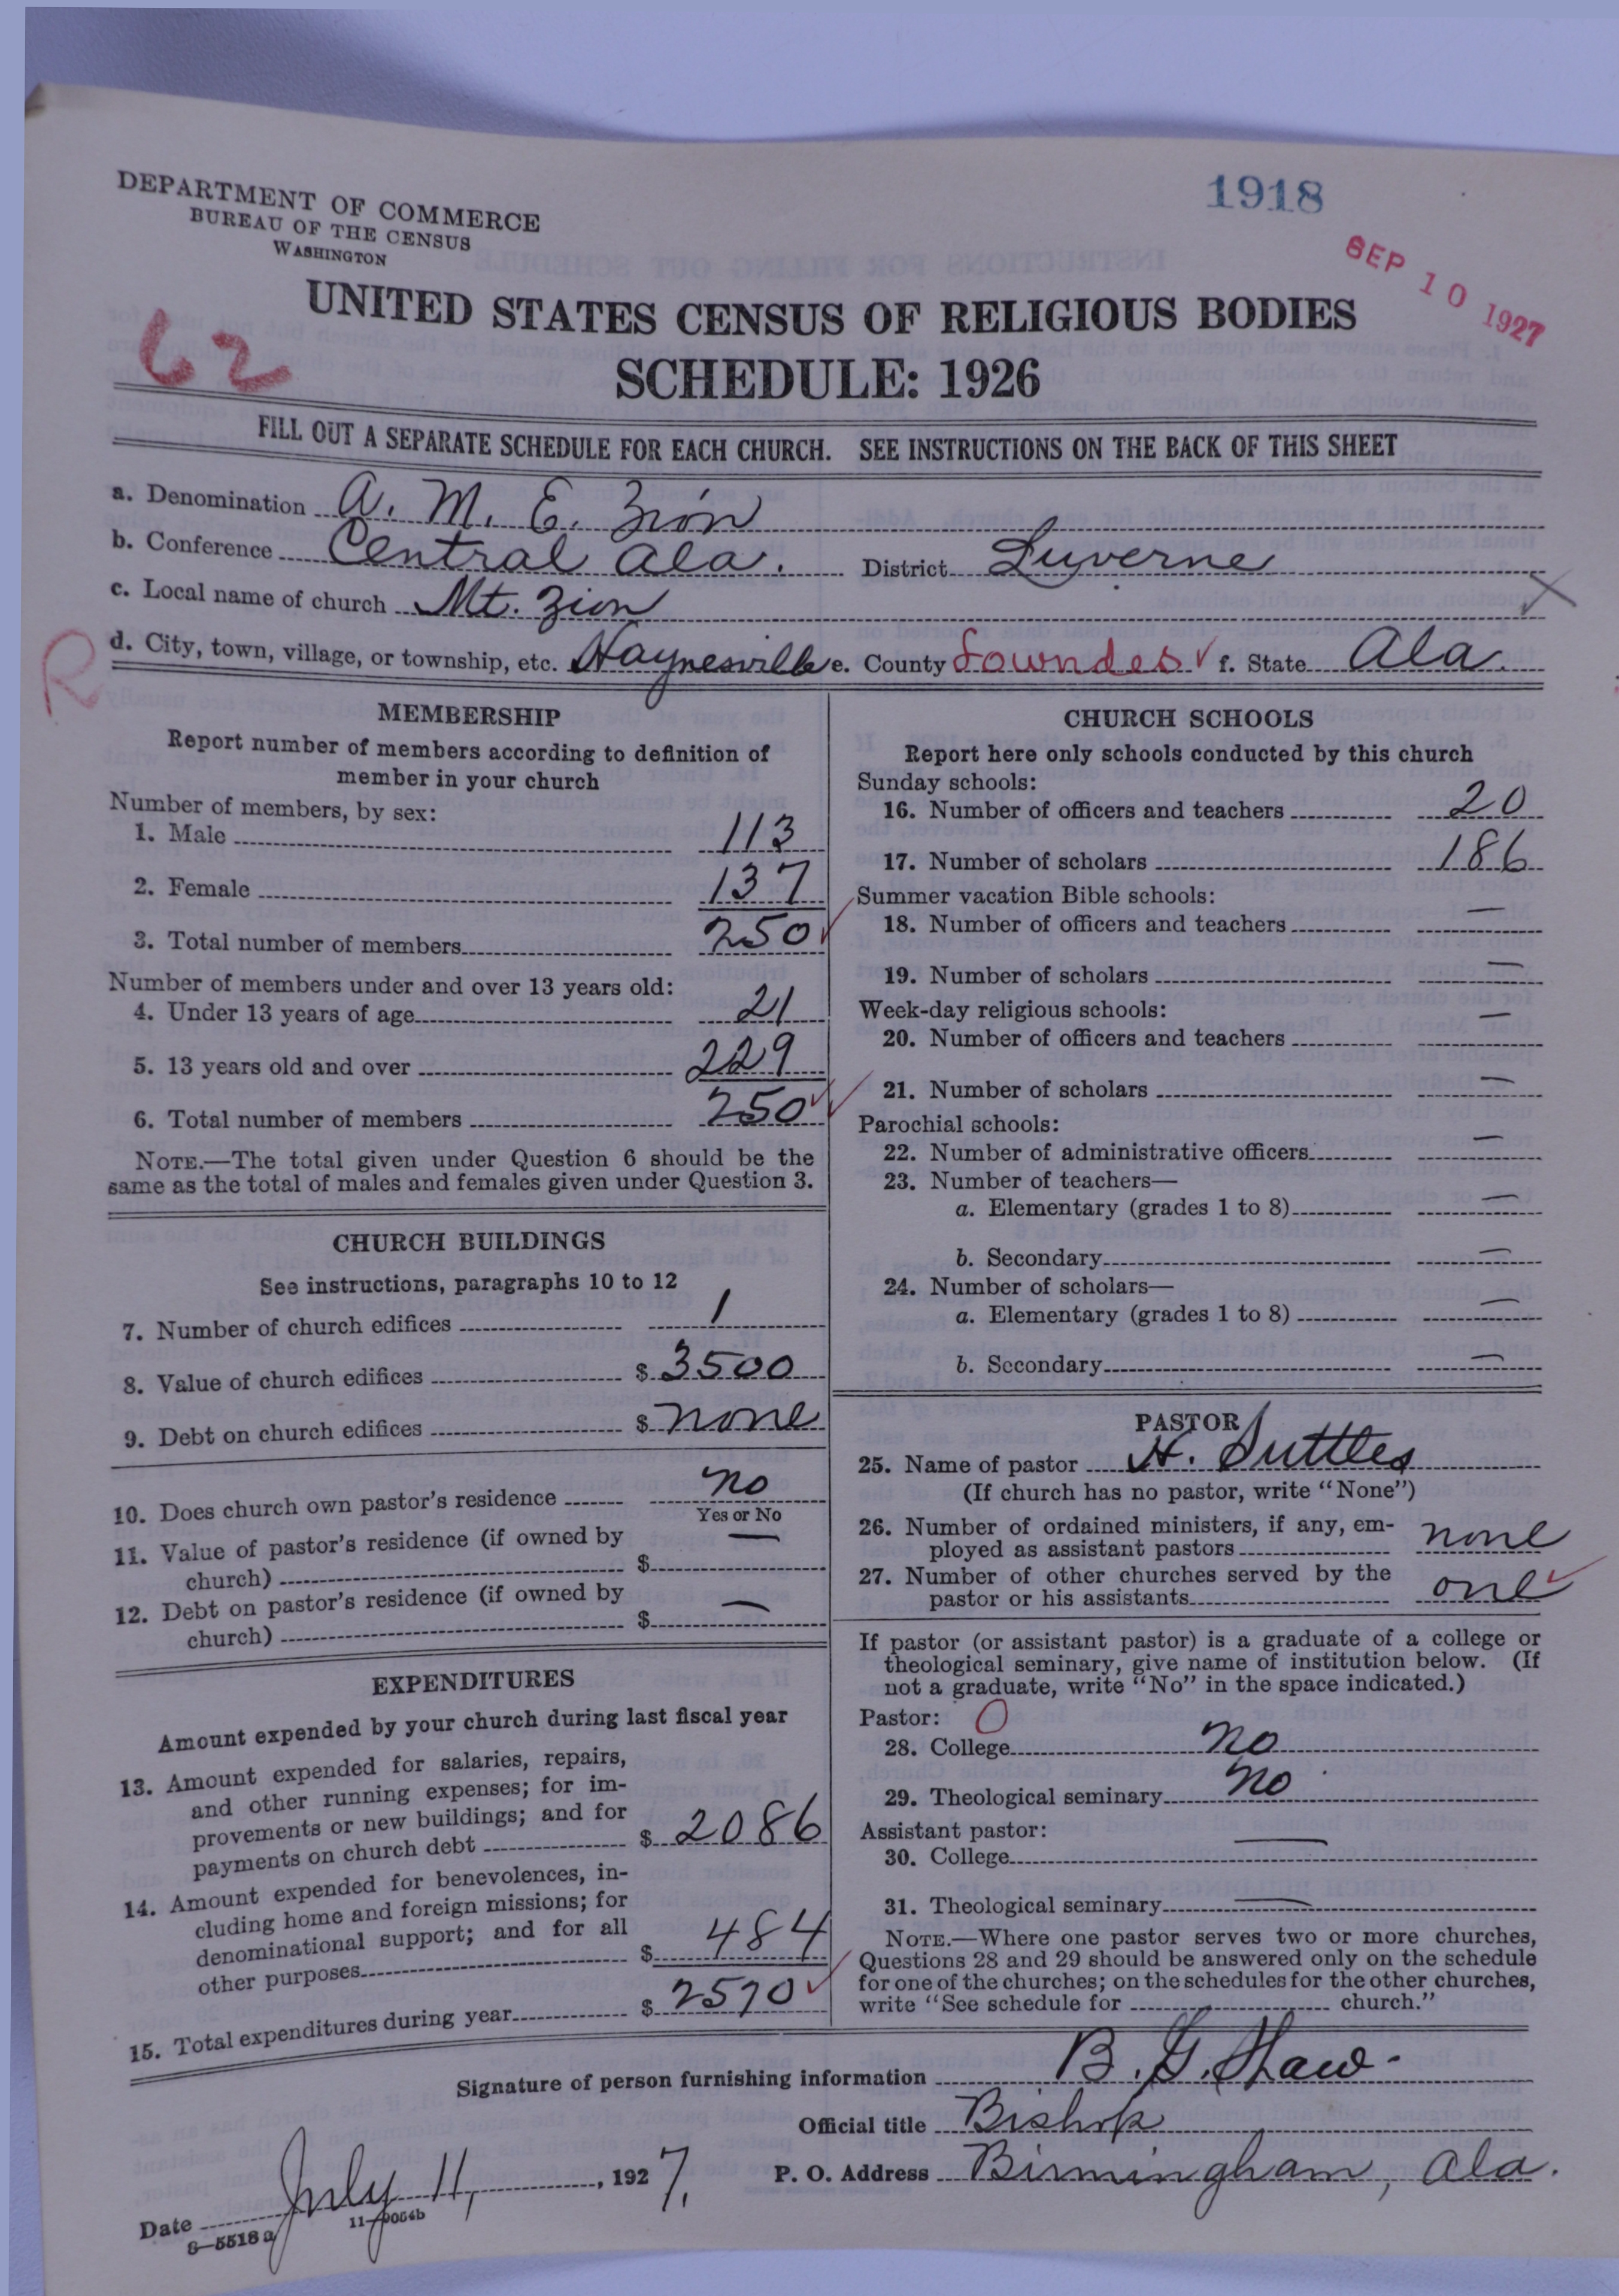 DEPARTMENT OF COMMERCE
BUREAU OF THE CENSUS
WASHINGTON
1918
SEP 10 1927
62
UNITED STATES CENSUS OF RELIGIOUS BODIES
SCHEDULE: 1926
FILL OUT A SEPARATE SCHEDULE FOR EACH CHURCH. SEE INSTRUCTIONS ON THE BACK OF THIS SHEET
a. Denomination A. M. E. Zion
b. Conference Central Ala. District Luverne
c. Local name of church Mt. Zion
R
d. City, town, village, or township, etc. Haynesville e. County Lowndes f. State Ala.
MEMBERSHIP
Report number of members according to definition of
member in your church
Number of members, by sex:
1. Male 113
2. Female 137
3. Total number of members 250
Number of members under and over 13 years old:
4. Under 13 years of age 21
5. 13 years old and over 229
6. Total number of members 250
NOTE.—The total given under Question 6 should be the
same as the total of males and females given under Question 3.
CHURCH BUILDINGS
See instructions, paragraphs 10 to 12
7. Number of church edifices 1
8. Value of church edifices $ 3500
9. Debt on church edifices $ none
10. Does church own pastor's residence no
Yes or No
11. Value of pastor's residence (if owned by
church) $ —
12. Debt on pastor's residence (if owned by
church) $ —
EXPENDITURES
Amount expended by your church during last fiscal year
13. Amount expended for salaries, repairs,
and other running expenses; for im-
provements or new buildings; and for
payments on church debt $ 2086
14. Amount expended for benevolences, in-
cluding home and foreign missions; for
denominational support; and for all
other purposes $ 484
15. Total expenditures during year $ 2570
CHURCH SCHOOLS
Report here only schools conducted by this church
Sunday schools:
16. Number of officers and teachers 20
17. Number of scholars 186
Summer vacation Bible schools:
18. Number of officers and teachers —
19. Number of scholars —
Week-day religious schools:
20. Number of officers and teachers —
21. Number of scholars —
Parochial schools:
22. Number of administrative officers —
23. Number of teachers—
a. Elementary (grades 1 to 8) —
b. Secondary —
24. Number of scholars—
a. Elementary (grades 1 to 8) —
b. Secondary —
PASTOR
25. Name of pastor H. Suttles
(If church has no pastor, write "None")
26. Number of ordained ministers, if any, em-
ployed as assistant pastors none
27. Number of other churches served by the
pastor or his assistants one
If pastor (or assistant pastor) is a graduate of a college or
theological seminary, give name of institution below. (If
not a graduate, write "No" in the space indicated.)
Pastor: 0
28. College no
29. Theological seminary no
Assistant pastor:
30. College —
31. Theological seminary —
NOTE.—Where one pastor serves two or more churches,
Questions 28 and 29 should be answered only on the schedule
for one of the churches; on the schedules for the other churches,
write "See schedule for church."
Signature of person furnishing information B. G. Shaw
Official title Bishop
Date July 11, 1927. P. O. Address Birmingham, Ala.
8—5518 a 11—9064b